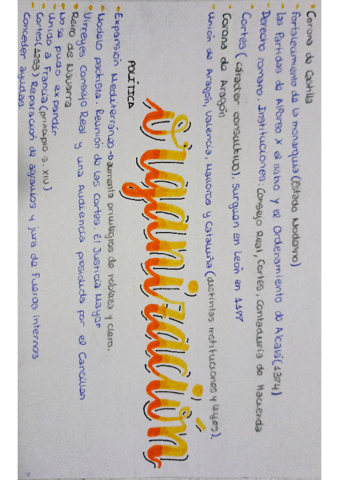 Corona de Castilla
Fortalecimiento de la monarquía (Estado Moderno)
Las Partidas de Alfonso X el sabio y el Ordenamiento de Alcalá (1384)
Derecho romano. Instituciones: Consejo Real, Cortes, Contaduría de Hacienda
Cortes (carácter consultivo). Surguen en León en
Corona de Aragón
Unión de Aragón, Valencia, y Cataluña (distintas instituciones y leyes).
Organización
POLÍTICA
Expansión Mediterráneo → aumenta privilegios de nobleza y clero.
Modelo pactista. Reunión de las cortes. El Justicia Mayor
Virreyes Consejo Real y una Audiencia presidida por el Canciller
Reino de Navarra
No se pudo expandir
Unido a Francia (principio s. XIV)
Cortes (1253) Reparación de agravios y jura de fueros internos
Conceder ayudas